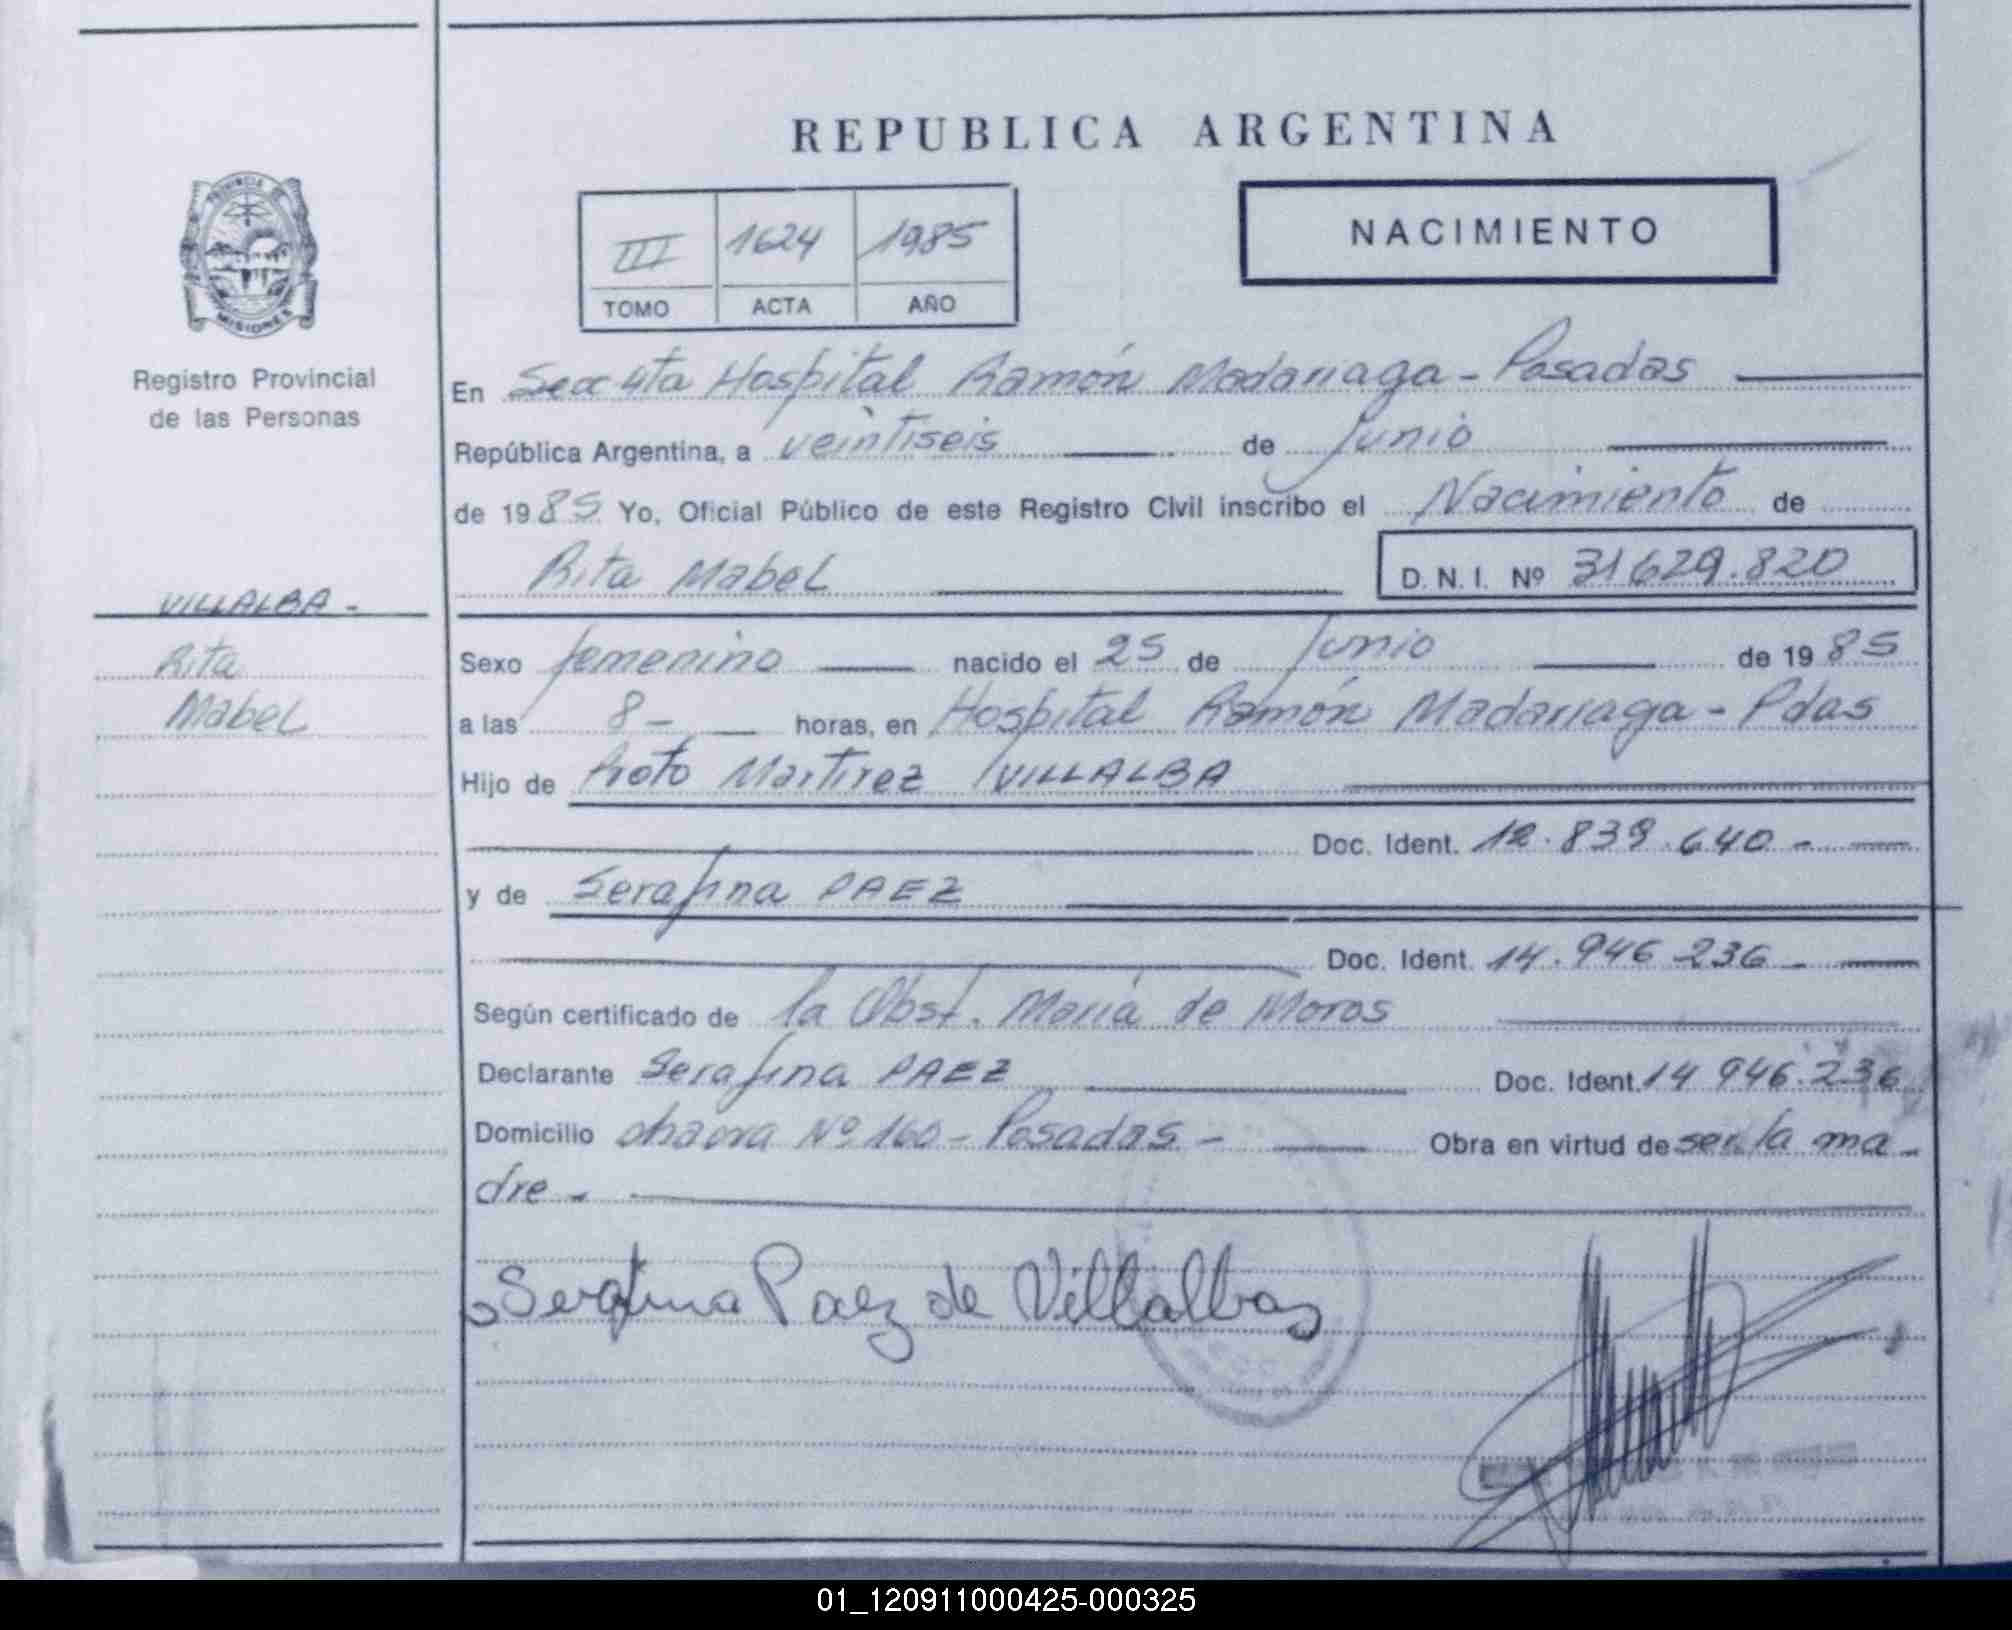 REPUBLICA ARGENTINA
PROVINCIA DE
MISIONES
Registro Provincial
de las Personas
III 1624 1985
TOMO ACTA AÑO
NACIMIENTO
En Secc 4ta Hospital Ramón Madariaga - Posadas
República Argentina, a veintiseis de Junio
de 1985 Yo, Oficial Público de este Registro Civil inscribo el Nacimiento de
Rita Mabel D. N. I. Nº 31629.820
VILLALBA -
Rita
Mabel
Sexo femenino nacido el 25 de Junio de 1985
a las 8 - horas, en Hospital Ramón Madariaga - Pdas
Hijo de Proto Martirez VILLALBA
Doc. Ident. 12.839.640 -
y de Serafina PAEZ
Doc. Ident. 14.946 236 -
Según certificado de la Obst. María de Moros
Declarante Serafina PAEZ Doc. Ident. 14 946.236
Domicilio chacra Nº 160 - Posadas - Obra en virtud de ser la ma -
dre -
Serafina Paez de Villalba
01_120911000425-000325